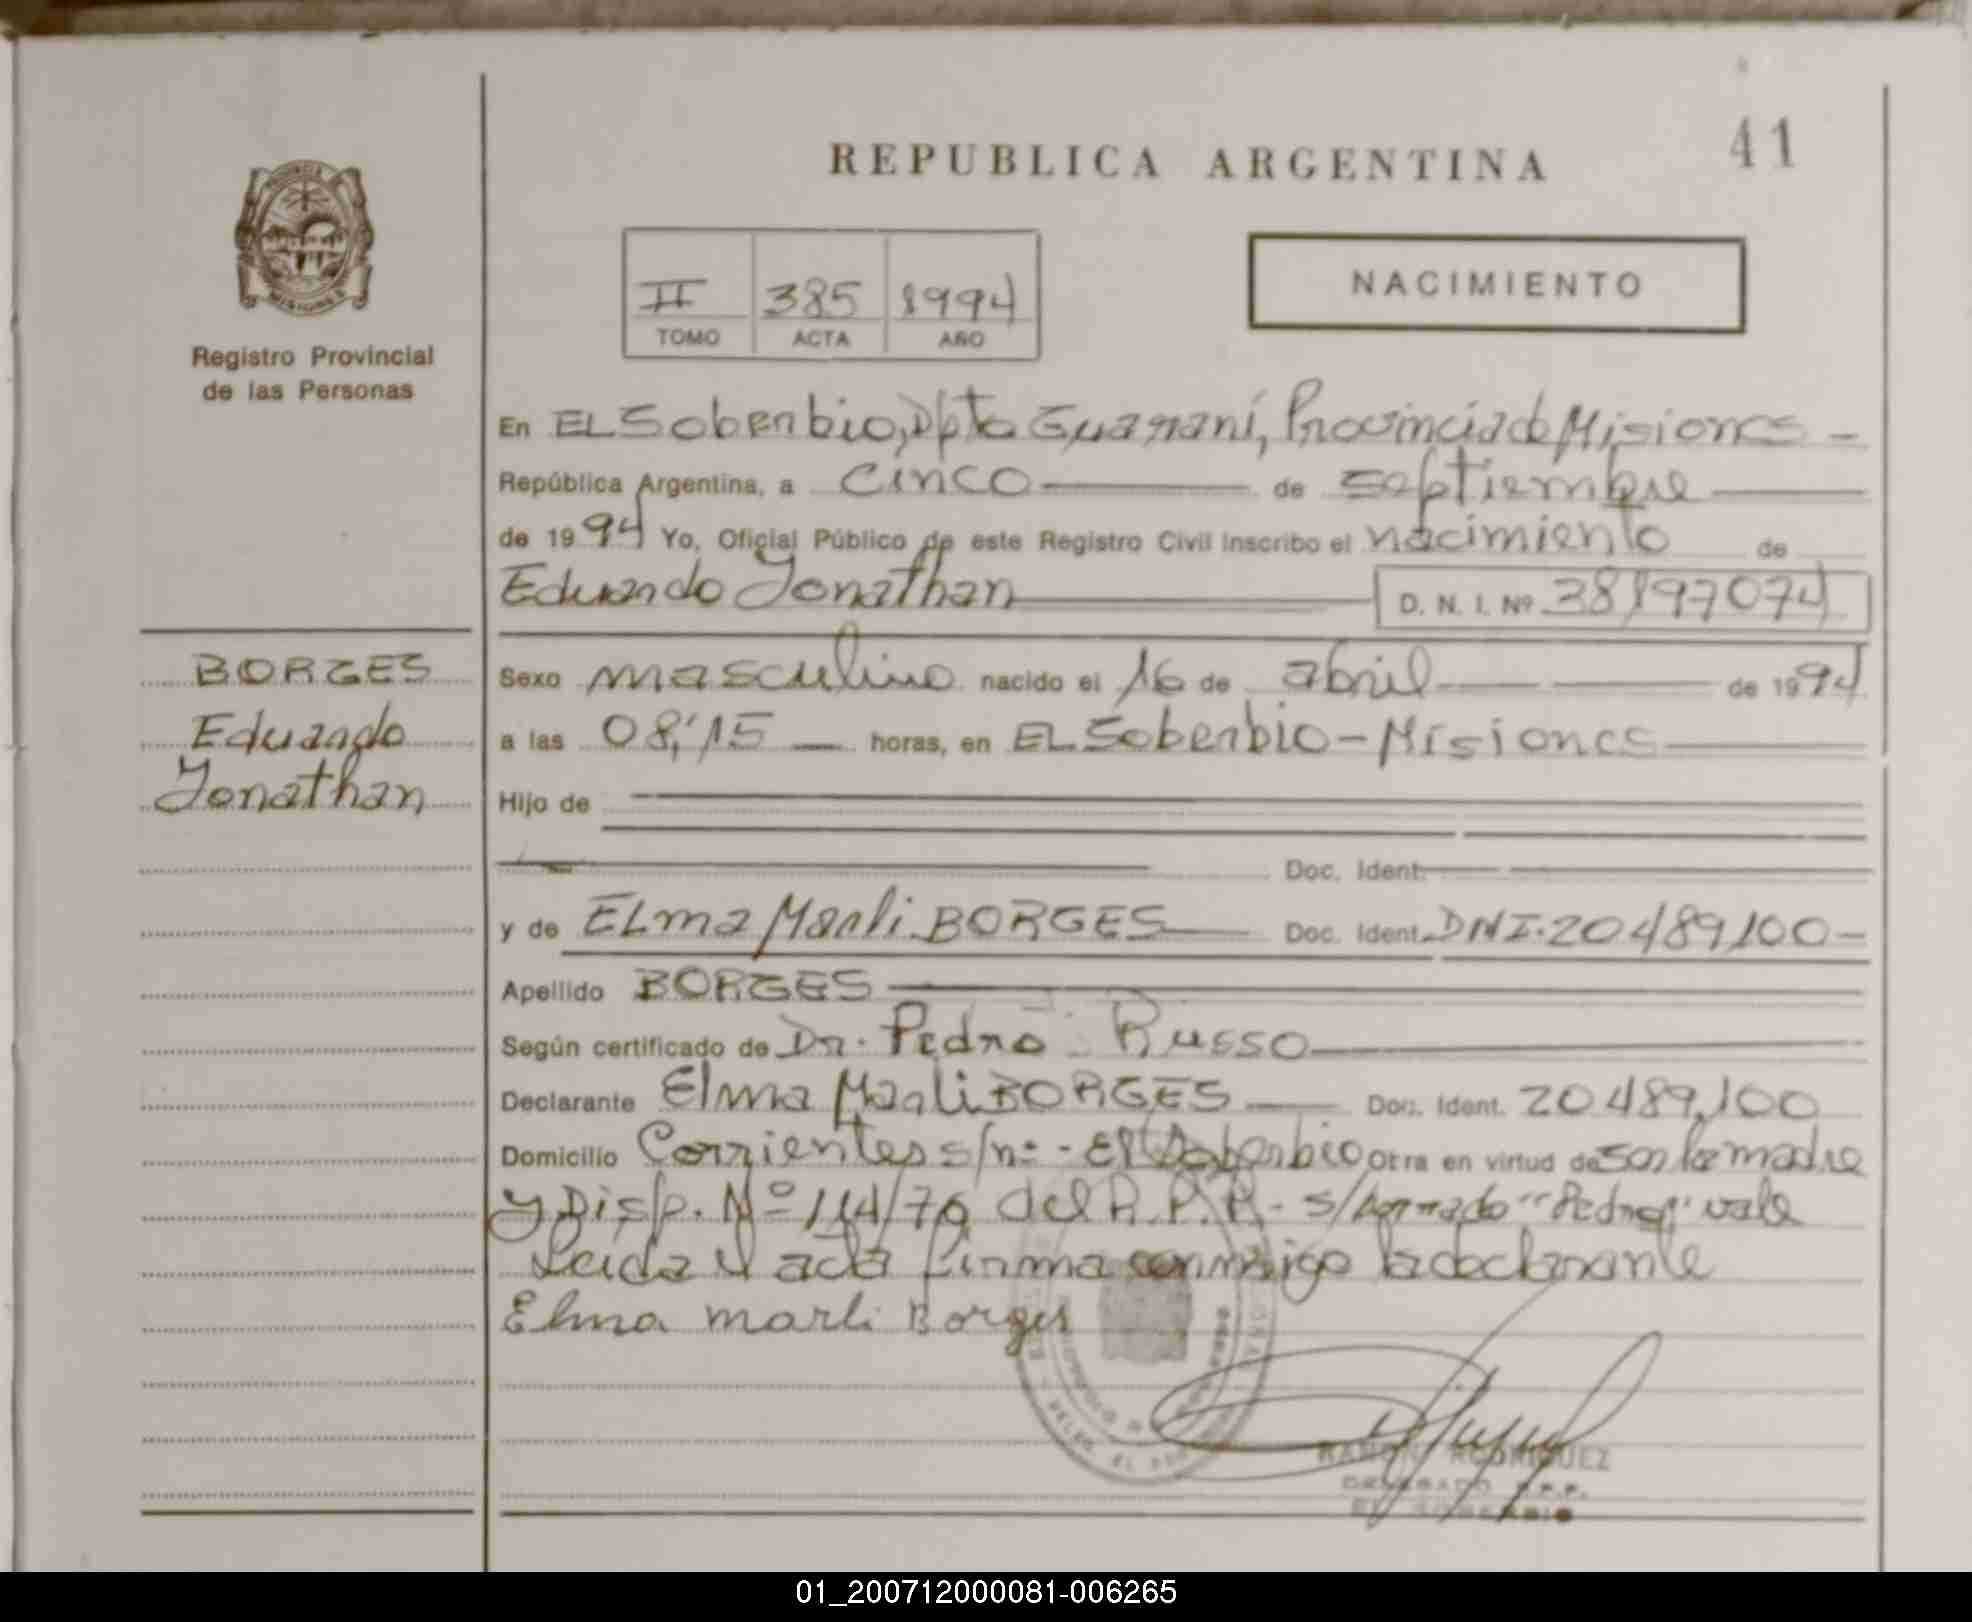 41
REPUBLICA ARGENTINA
NACIMIENTO
II 385 1994
TOMO ACTA AÑO
MISIONES
Registro Provincial
de las Personas
BORGES
Eduardo
Jonathan
En EL Soberbio, Dpto Guaraní, Provincia de Misiones -
República Argentina, a cinco de septiembre
de 1994 Yo, Oficial Público de este Registro Civil inscribo el nacimiento de
Eduardo Jonathan D. N. I. Nº 38197074
Sexo masculino nacido el 16 de abril de 1994
a las 08,15 horas, en EL Soberbio - Misiones
Hijo de
Doc. Ident.
y de ELma Marli BORGES Doc. Ident. DNI. 20489,100 -
Apellido BORGES
Según certificado de Dr. Pedro Russo
Declarante Elma Marli BORGES Doc. Ident. 20489,100
Domicilio Corrientes s/nº - El Soberbio Otra en virtud de ser la madre
y Disp. Nº 114/76 del R.P.P. - s/borrado "Pedro" vale
Leida el acta firma conmigo la declarante
Elma Marli Borges
RAMON RODRIGUEZ
DELEGADO R.P.P.
EL SOBERBIO
01_200712000081-006265